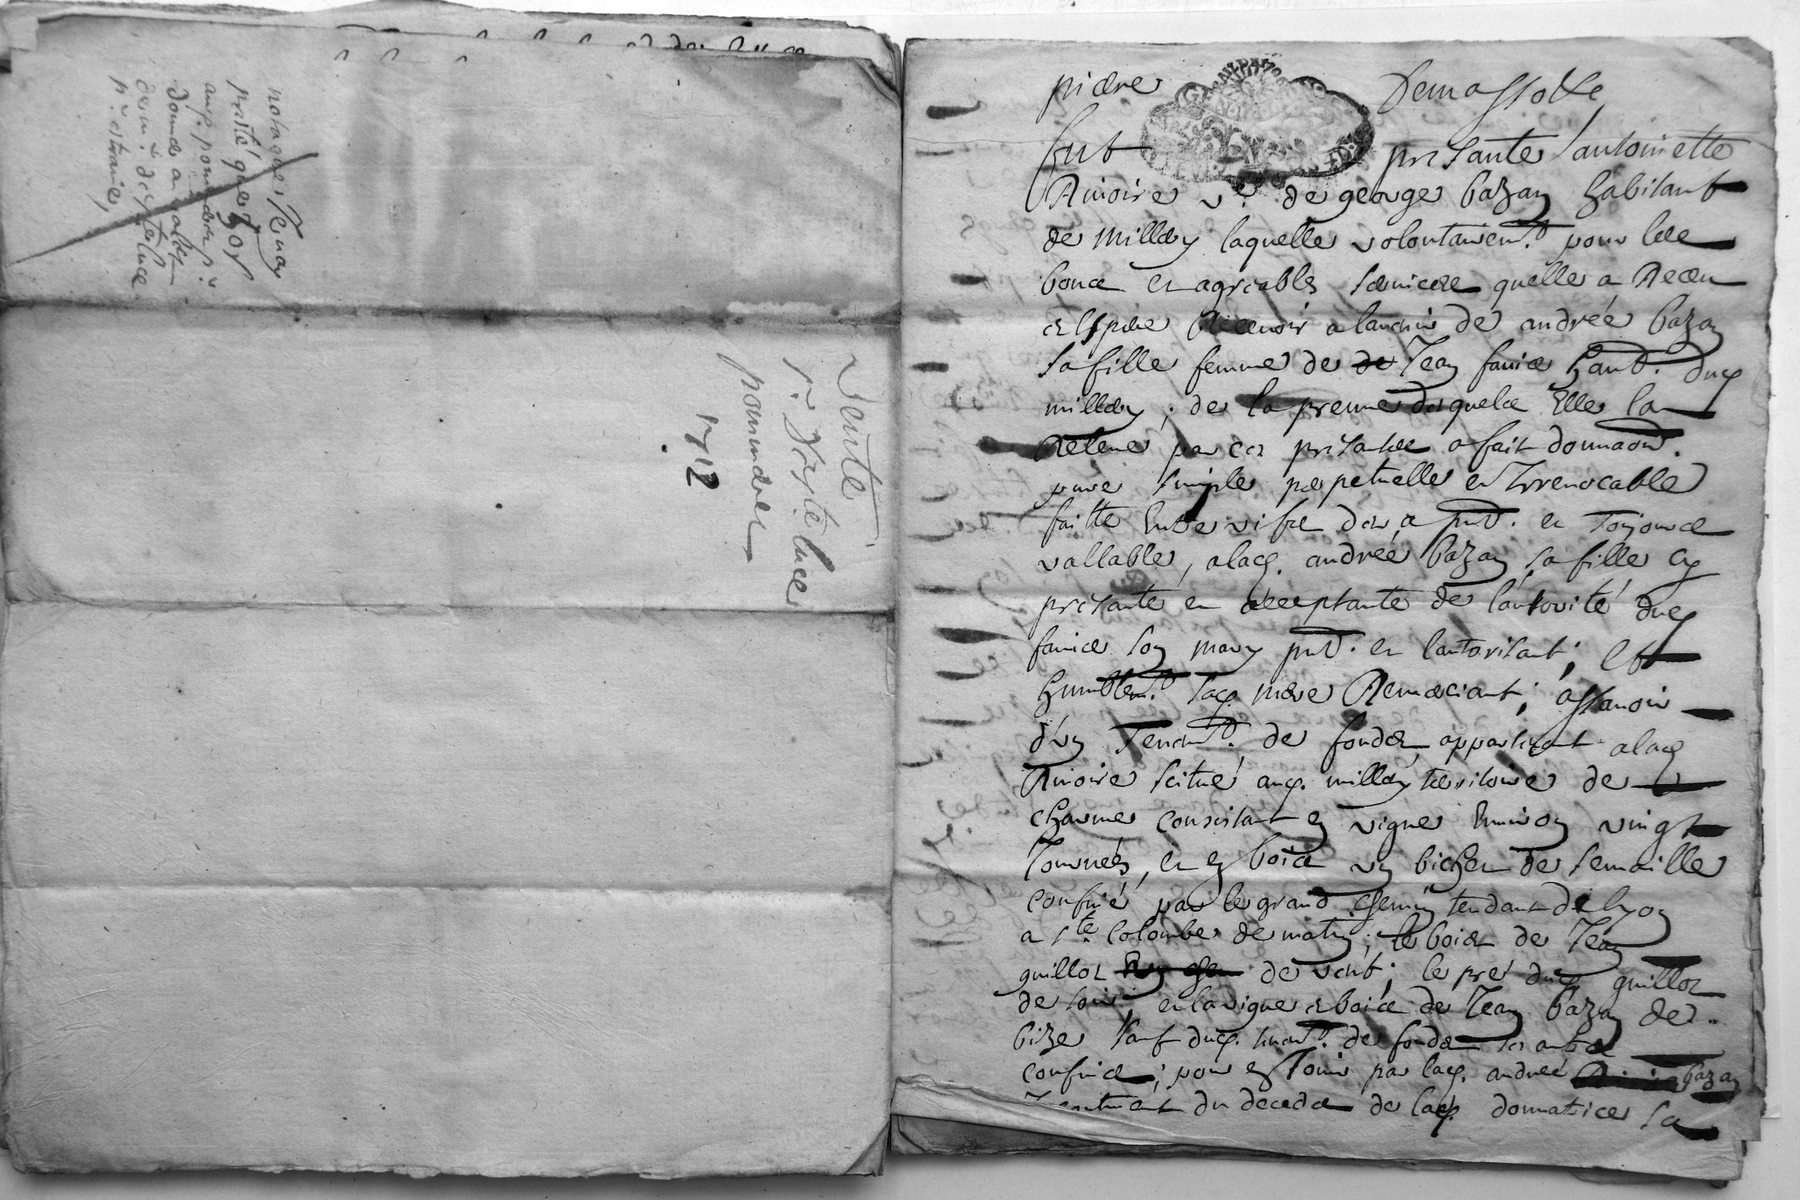 vente
Ste luce
pommdres
1712
piere Demassotte
fut presante antoinette
Rivoire vᵉ. de george bazan habitant
de millery laquelle volontairemᵗ. pour les
bons et agreables services quelle a Receu
et espere Recevoir a lavenir de andreé bazan
sa fille femme de Jean faure habᵗ. dud
millery ; de la preuve desquels Elle la
Releve par ces presantes a fait donnaoᵒⁿ.
pure simple perpetuelle et Irrevocable
faitte Entre vifs des a pntᵗ. et Toujours
vallable, alad. andreé bazan sa fille cy
presante et acceptante de lautorité dud
faure son mary pntᵗ. et lautorisant ; Et
humblemᵗ. sad. mere Remerciant ; assavoir
d'un Tenemᵗ. de fonds appartenant alad
Rivoire scitué aud. millery territoire de
charmes consistant en vigne Environ vingt
Journeés, et en bois un bichet de semaille
confiné par le grand chemin tendant de lyon
a ste. Colombe de matin ; le bois de Jean
guillot de vent ; le pré dud guillot
de soir et la vigne et bois de Jean bazan de
bize sauf dud. tenemᵗ. de fonds ses autres
confins ; pour en Jouir par lad. andreé bazan
du deceds de lad. donnatrice sa